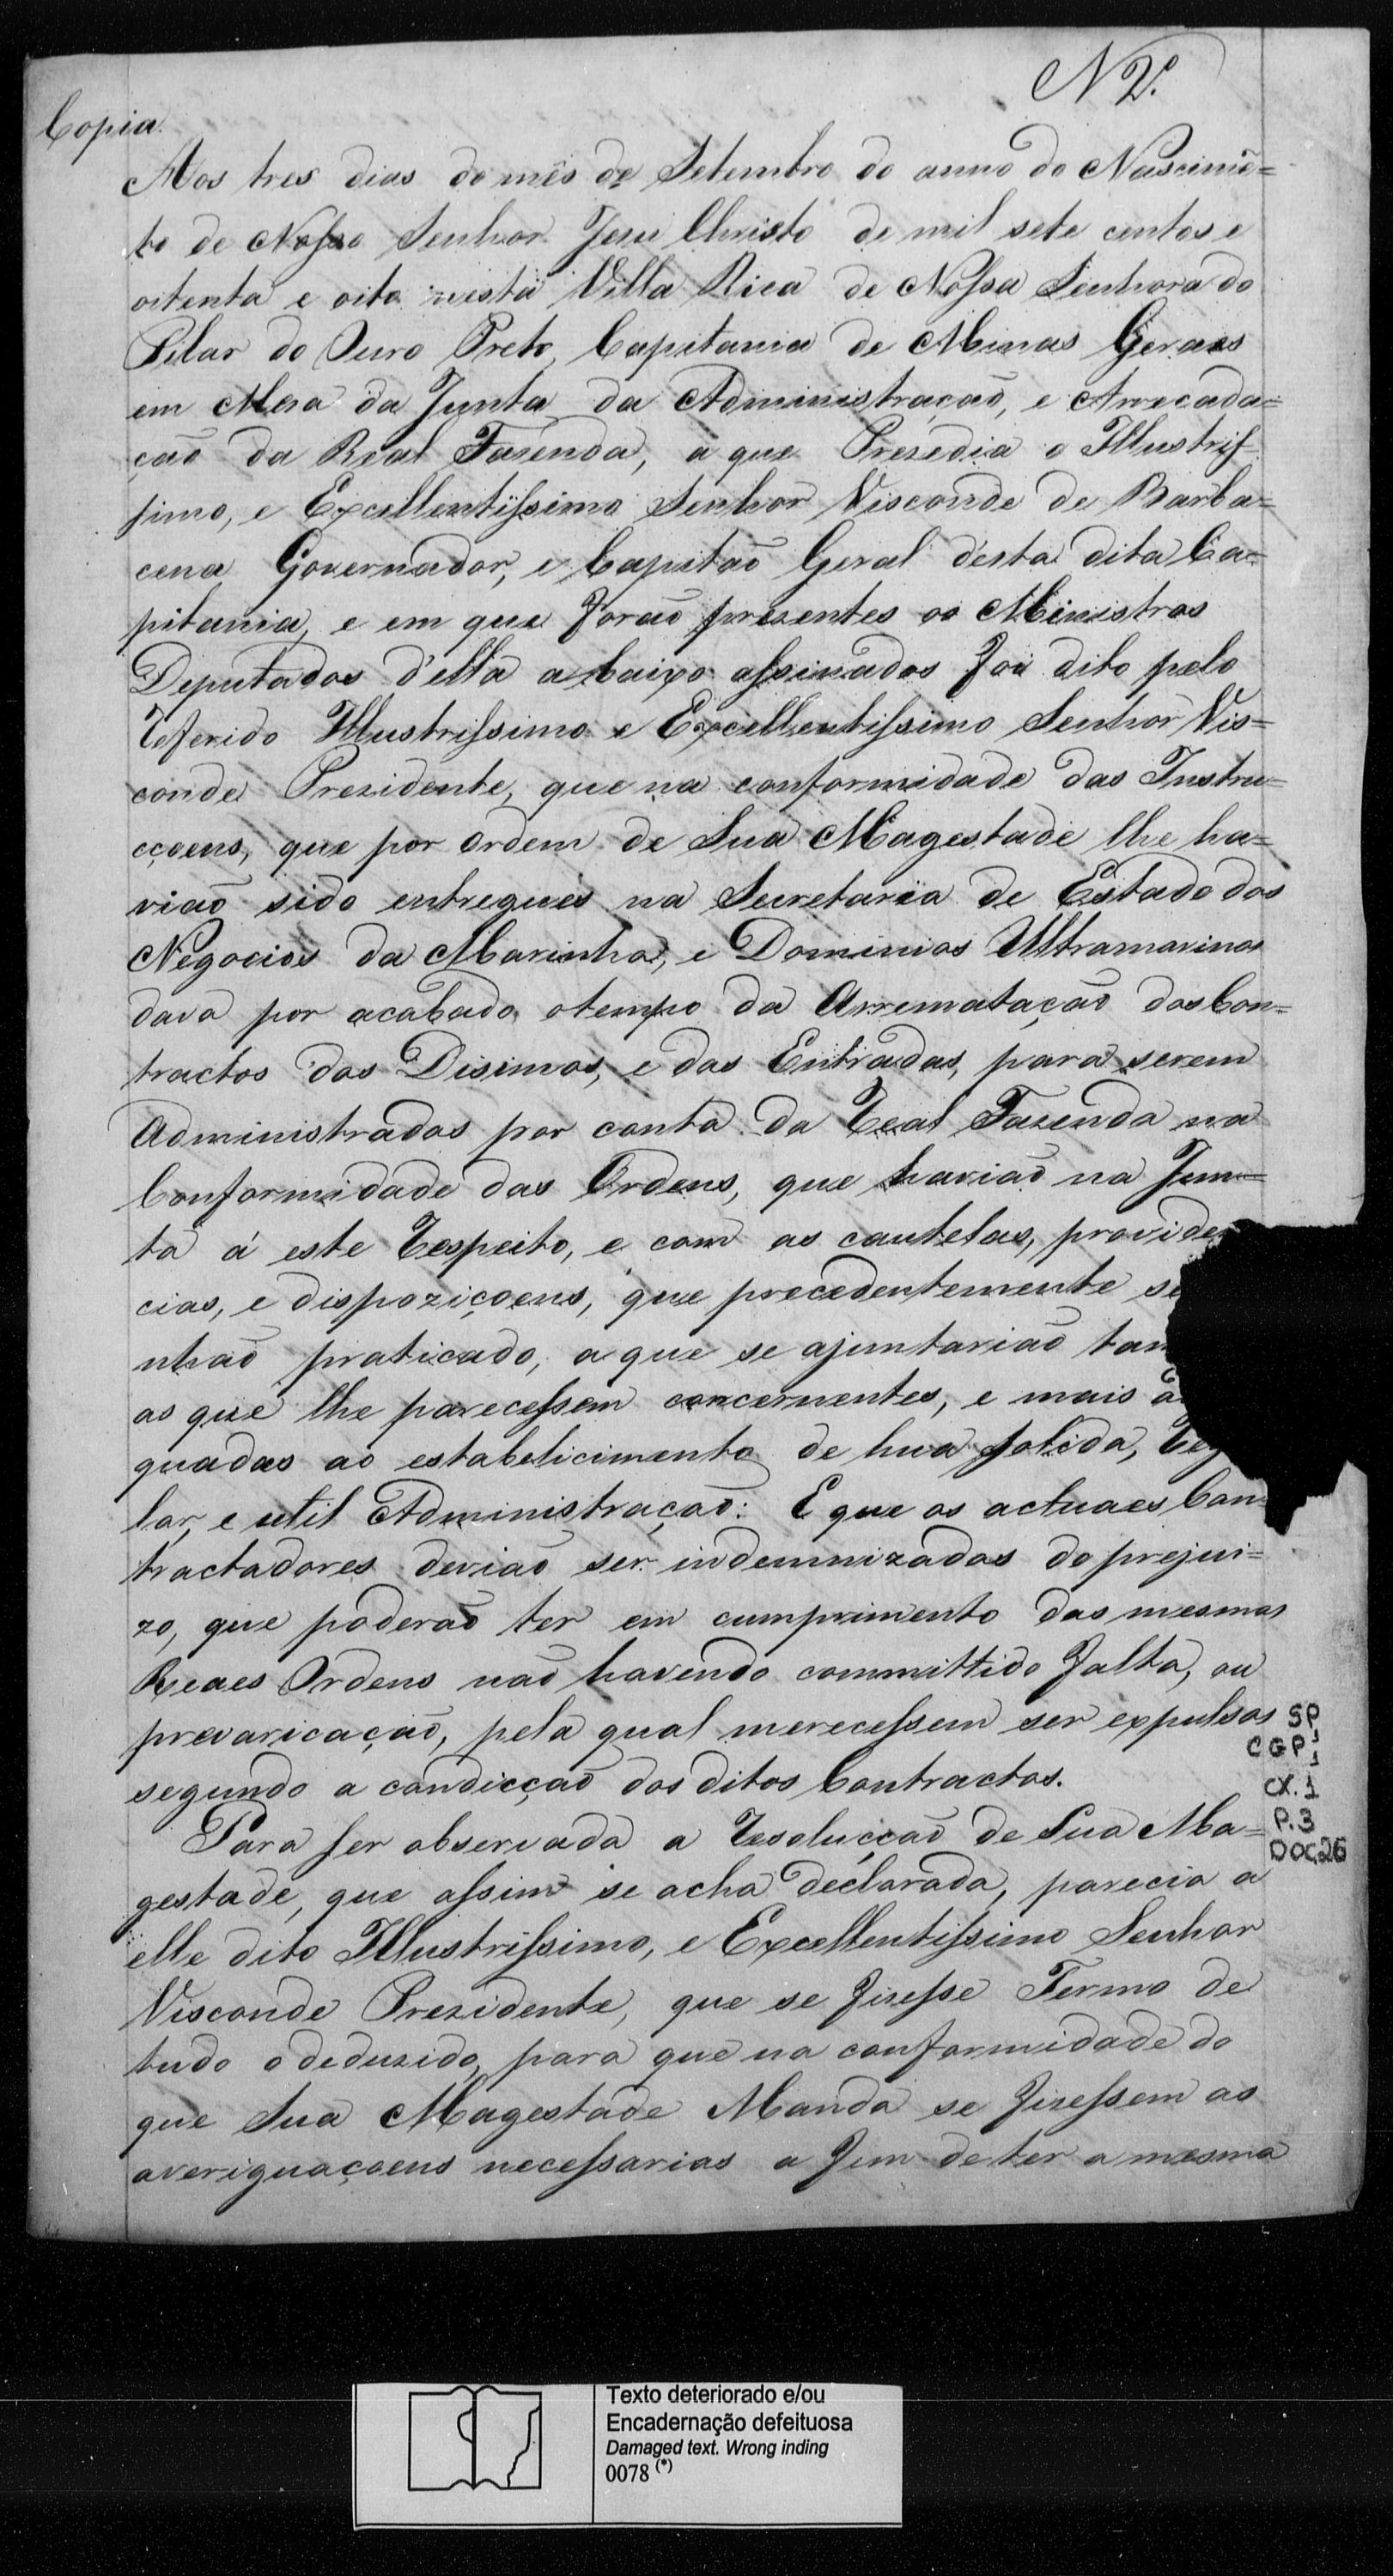 N 2º
Copia.
Aos tres dias do mês de Setembro do anno do Nascimē=
to de Nosso Senhor Jesu Christo de mil sete centos e
oitenta e oito nesta Villa Rica de Nossa Senhora do
Pilar do Ouro Preto, Capitania de Minas Geraes
em Mesa da Junta da Administração, e Arrecada=
ção da Real Fazenda, a que Presedia o Illustris-
simo, e Excellentissimo Senhor Visconde de Barba=
cena Governador, e Capitão Geral d'esta dita Ca=
pitania, e em que forão presentes os Ministros
Deputados d'ella abaixo assinados foi dito pelo
referido Illustrissimo e Excellentissimo Senhor Vis=
conde Prezidente, que na conformidade das Instru=
cçoens, que por ordem de Sua Magestade lhe ha=
vião sido entregues na Secretaria de Estado dos
Negocios da Marinha, e Dominios Ultramarinos
dava por acabado o tempo da Arrematação dos Con=
tractos dos Disimos, e das Entradas, para serem
Administrados por conta da Real Fazenda na
Conformidade das Ordens, que havião na Jun=
ta á este Respeito, e com as cautelas, providen
cias, e dispoziçoens, que precedentemente se
nhão praticado, a que se ajuntarião tam
as que lhe parecessem concernentes, e mais a
quadas ao estabelicimento de hua solida, reg
lar, e util Administração: E que os actuaes Con=
tractadores devião ser indemnizados do prejui=
zo, que poderão ter em cumprimento das mesmas
Reaes Ordens não havendo committido falta, ou
prevaricação, pela qual merecessem ser expulsos
segundo a condicção dos ditos Contractos.
Para ser observada a Resolucção de Sua Ma=
gestade, que assim se acha declarada, parecia a
elle dito Illustrissimo, e Excellentissimo Senhor
Visconde Prezidente, que se fizesse Termo de
tudo o deduzido, para que na conformidade do
que Sua Magestade Manda se fizessem as
averiguaçoens necessarias a fim de ter a mesma
SP
CGP 1
1
CX. 1
P. 3
DOC. 26
Texto deteriorado e/ou
Encadernação defeituosa
Damaged text. Wrong inding
0078 (*)